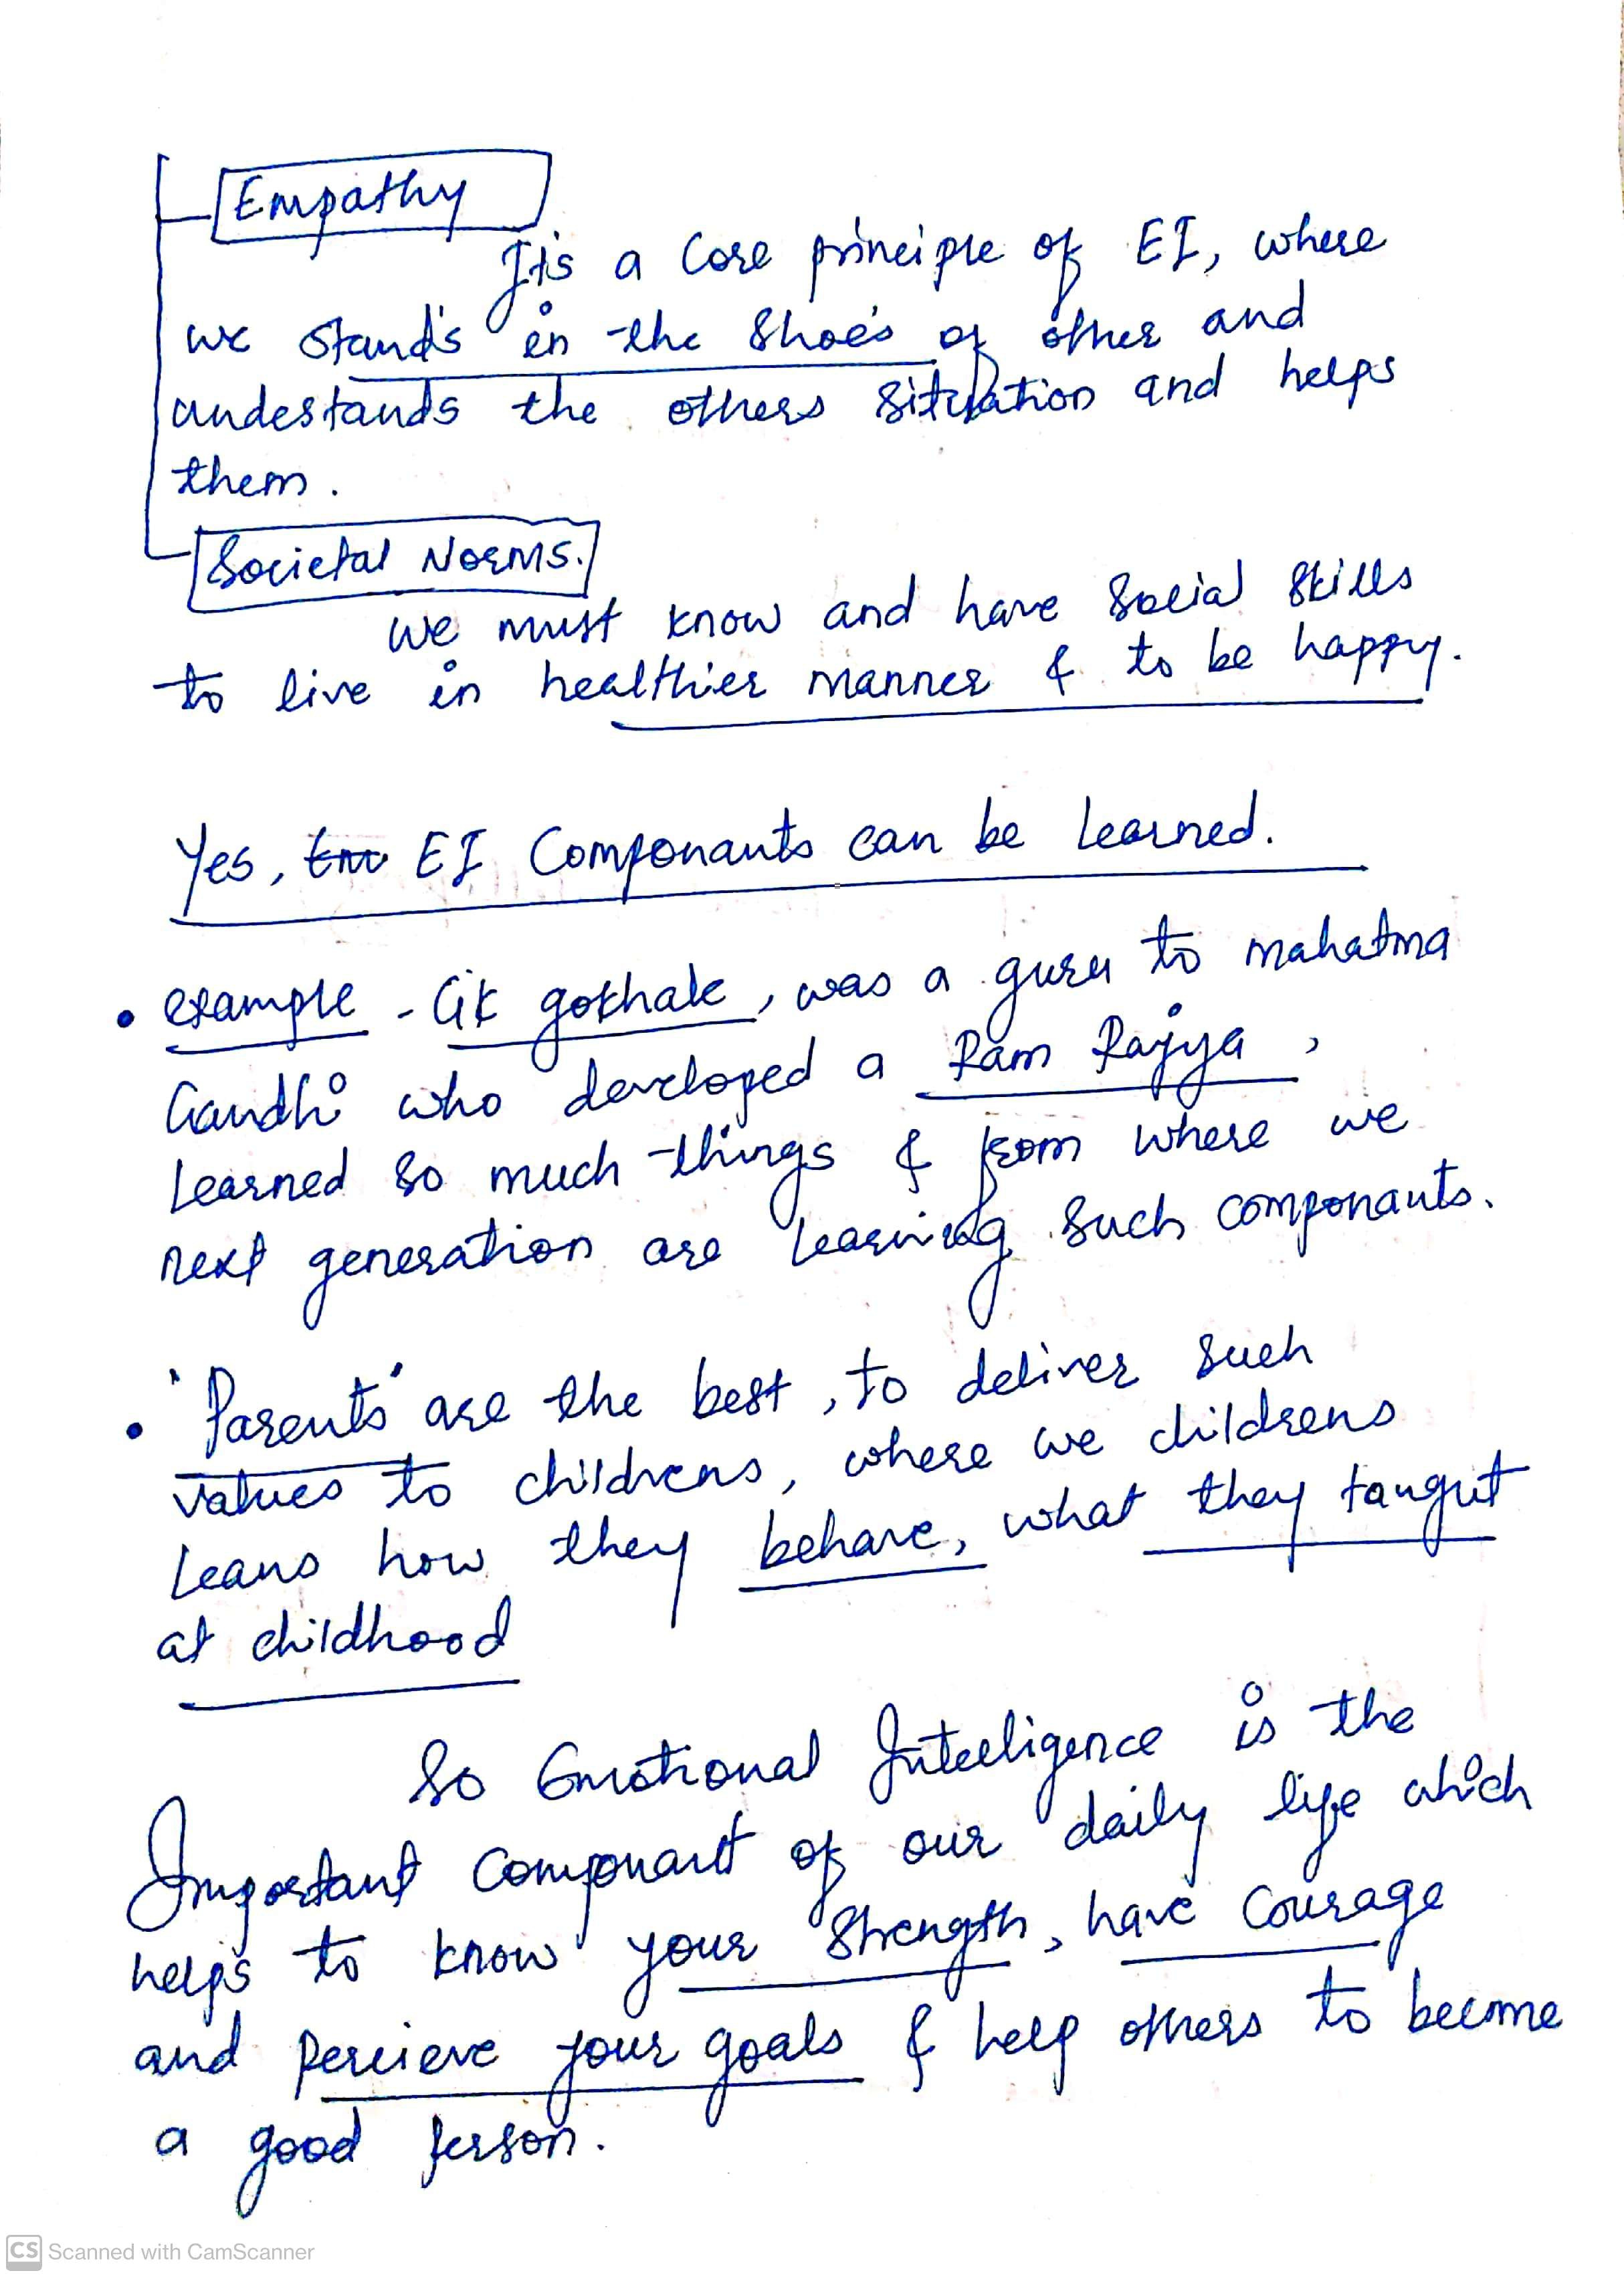 Empathy
It's a Core principle of EI, where
we stand's in the Shoe's of other and
undestands the others situation and helps
them.
Societal Norms.
we must know and have Social Skills
to live in healthier manner & to be happy.
Yes, EI Componants can be learned.
• example - GK gokhale, was a guru to mahatma
Gandhi who developed a Ram Rajya,
learned so much things & from where we
next generation are learning such componants.
• 'Parents' are the best, to deliver such
values to childrens, where we childrens
leans how they behave, what they taught
at childhood
So Emotional Intelligence is the
Important Componant of our daily life which
helps to know your Strength, have Courage
and Percieve your goals & help others to become
a good person.
CS Scanned with CamScanner